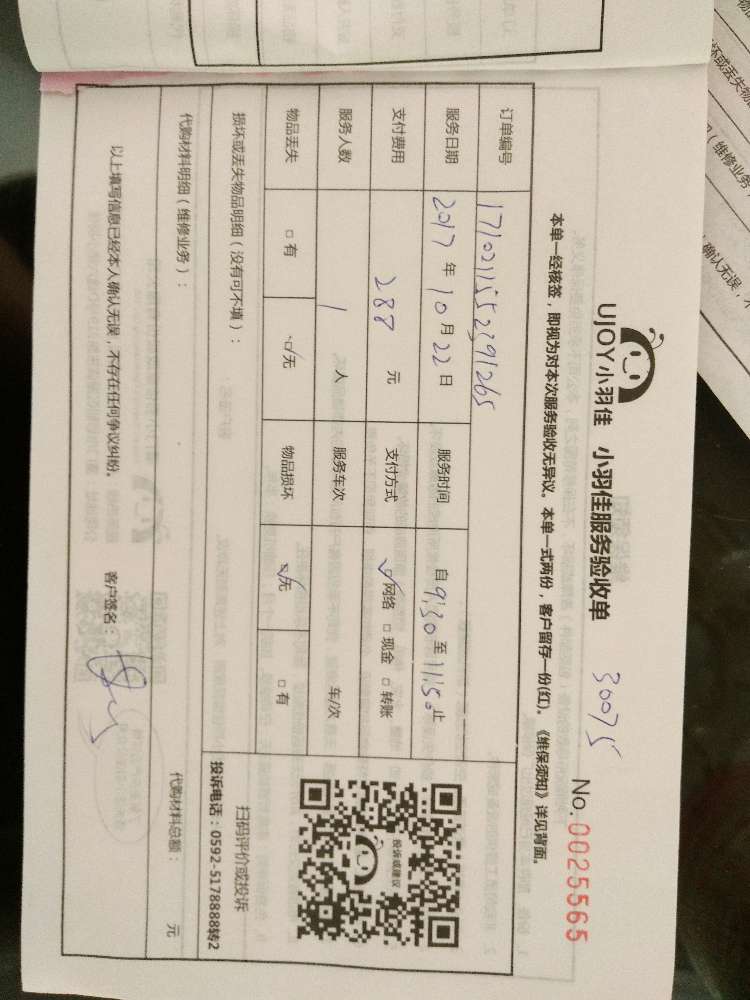 UJOY小羽佳 小羽佳服务验收单 30075 No.0025565
本单一经核签，即视为对本次服务验收无异议。本单一式两份，客户留存一份(红)。《维保须知》详见背面。
订单编号 1710211552391265
服务日期 2017 年 10 月 22 日 服务时间 自 9:30 至 11:50 止
支付费用 288 元 支付方式 ☑网络 □现金 □转账
服务人数 1 人 服务车次 车/次
物品丢失 □有 ☑无 物品损坏 ☑无 □有
损坏或丢失物品明细（没有可不填）：
投诉或建议
扫码评价或投诉
投诉电话：0592-5178888转2
代购材料明细（维修业务）： 代购材料总额： 元
以上填写信息已经本人确认无误，不存在任何争议纠纷。 客户签名：